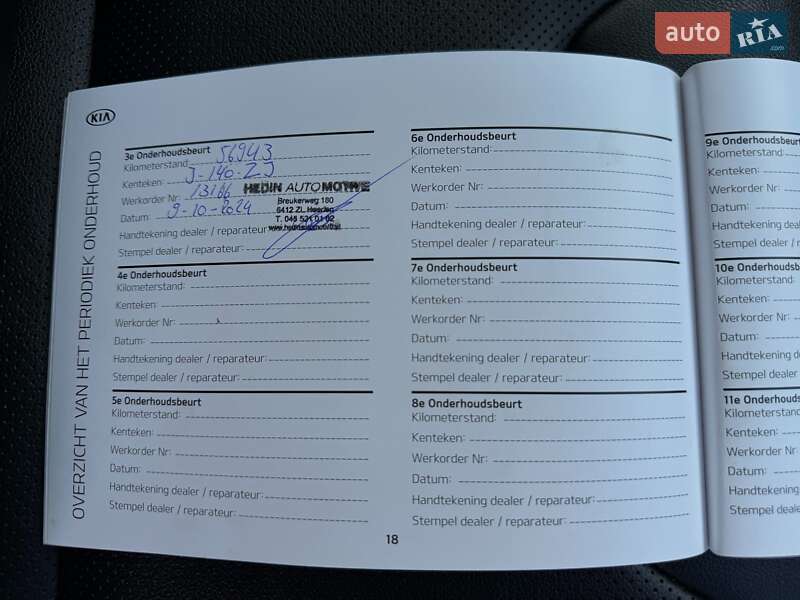 auto RIA.com
KIA
OVERZICHT VAN HET PERIODIEK ONDERHOUD
3e Onderhoudsbeurt
Kilometerstand 56943
Kenteken: J-140-ZJ
Werkorder Nr: 13166
Datum: 9-10-2024
Handtekening dealer / reparateur:
Stempel dealer / reparateur:
HEDIN AUTOMOTIVE
Breukerweg 180
6412 ZL Heerlen
T. 045 521 01 02
4e Onderhoudsbeurt
Kilometerstand:
Kenteken:
Werkorder Nr:
Datum:
Handtekening dealer / reparateur:
Stempel dealer / reparateur:
5e Onderhoudsbeurt
Kilometerstand:
Kenteken:
Werkorder Nr:
Datum:
Handtekening dealer / reparateur:
Stempel dealer / reparateur:
6e Onderhoudsbeurt
Kilometerstand:
Kenteken:
Werkorder Nr:
Datum:
Handtekening dealer / reparateur:
Stempel dealer / reparateur:
7e Onderhoudsbeurt
Kilometerstand:
Kenteken:
Werkorder Nr:
Datum:
Handtekening dealer / reparateur:
Stempel dealer / reparateur:
8e Onderhoudsbeurt
Kilometerstand:
Kenteken:
Werkorder Nr:
Datum:
Handtekening dealer / reparateur:
Stempel dealer / reparateur:
18
9e Onderhoudsbeurt
Kilometerstand:
Kenteken:
Werkorder Nr:
Datum:
Handtekening
Stempel dealer / r
10e Onderhoudsb
Kilometerstand:
Kenteken:
Werkorder Nr:
Datum:
Handtekening
Stempel dealer /
11e Onderhouds
Kilometerstand
Kenteken:
Werkorder Nr:
Datum:
Handtekening
Stempel dealer